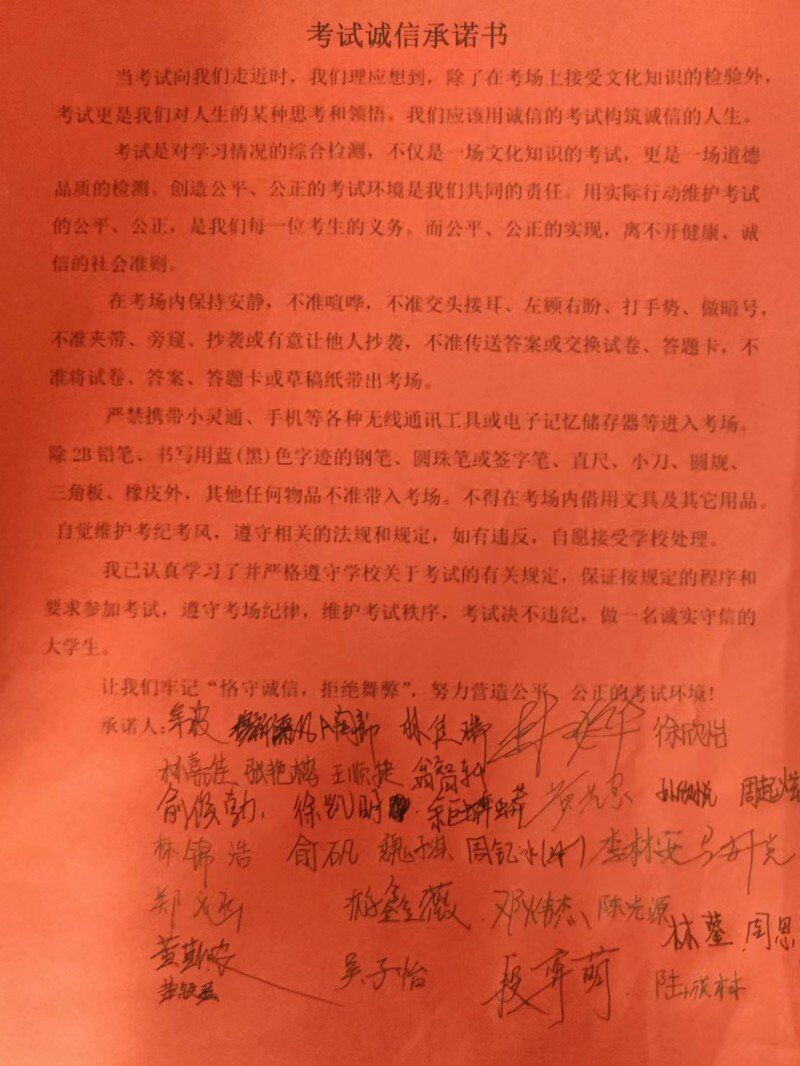 考试诚信承诺书
当考试向我们走近时，我们理应想到，除了在考场上接受文化知识的检验外，
考试更是我们对人生的某种思考和领悟。我们应该用诚信的考试构筑诚信的人生。
考试是对学习情况的综合检测，不仅是一场文化知识的考试，更是一场道德
品质的检测。创造公平、公正的考试环境是我们共同的责任。用实际行动维护考试
的公平、公正，是我们每一位考生的义务。而公平、公正的实现，离不开健康、诚
信的社会准则。
在考场内保持安静，不准喧哗，不准交头接耳、左顾右盼、打手势、做暗号，
不准夹带、旁窥、抄袭或有意让他人抄袭，不准传送答案或交换试卷、答题卡，不
准将试卷、答案、答题卡或草稿纸带出考场。
严禁携带小灵通、手机等各种无线通讯工具或电子记忆储存器等进入考场。
除2B铅笔、书写用蓝(黑)色字迹的钢笔、圆珠笔或签字笔、直尺、小刀、圆规、
三角板、橡皮外，其他任何物品不准带入考场。不得在考场内借用文具及其它用品。
自觉维护考纪考风，遵守相关的法规和规定，如有违反，自愿接受学校处理。
我已认真学习了并严格遵守学校关于考试的有关规定，保证按规定的程序和
要求参加考试，遵守考场纪律，维护考试秩序，考试决不违纪，做一名诚实守信的
大学生。
让我们牢记“恪守诚信，拒绝舞弊”，努力营造公平、公正的考试环境!
承诺人: 牟波 林佳瑞 徐欣怡
林嘉佳 张艳榕 王顺捷 翁智轩
俞俊勃 徐凯明 孙欣悦 周起炫
林锦浩 俞矾 魏子淇 李林安
鑫薇 邓炜杰 陈光源
林蓥 周恩
吴子怡 段弈萌 陆成林